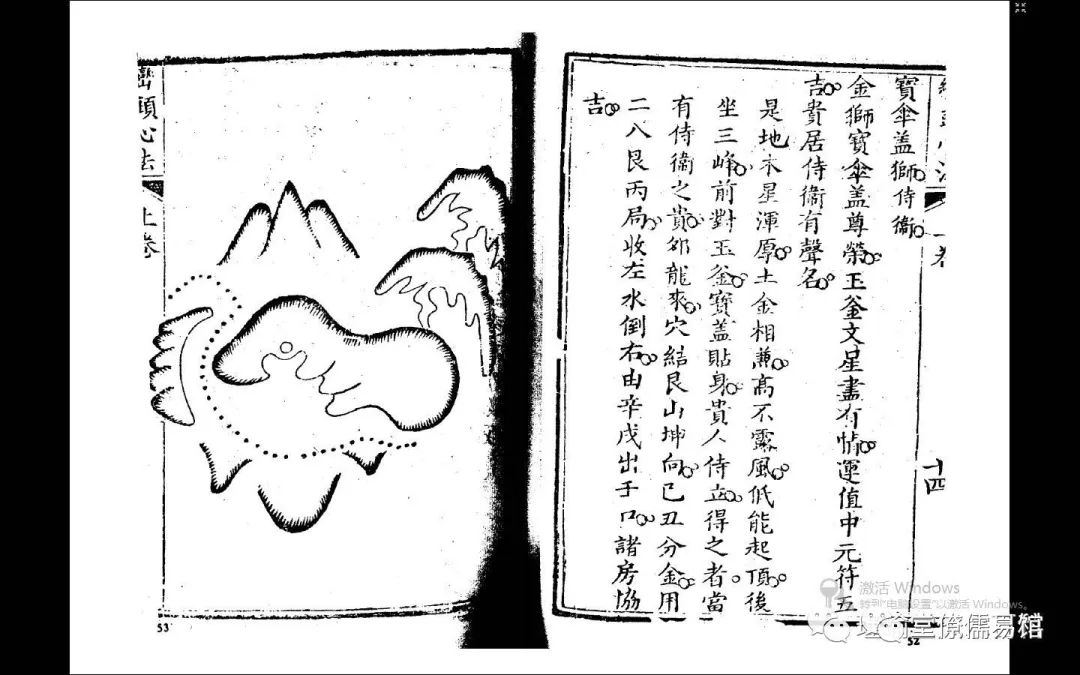 寶傘盖獅侍衞
金獅寶傘盖尊榮玉釜文星盡有情運值中元符五
吉貴居侍衞有聲名
是地木星渾厚土金相兼高不露風低能起頂後
坐三峰前對玉釜寶盖貼身貴人侍立得之者當
有侍衞之貴卯龍來穴結艮山坤向己丑分金用
二八艮丙局收左水倒右由辛戌出于口諸房協
吉
十四
52
巒頭心法
上卷
53
激活 Windows
转到"电脑设置"以激活 Windows。